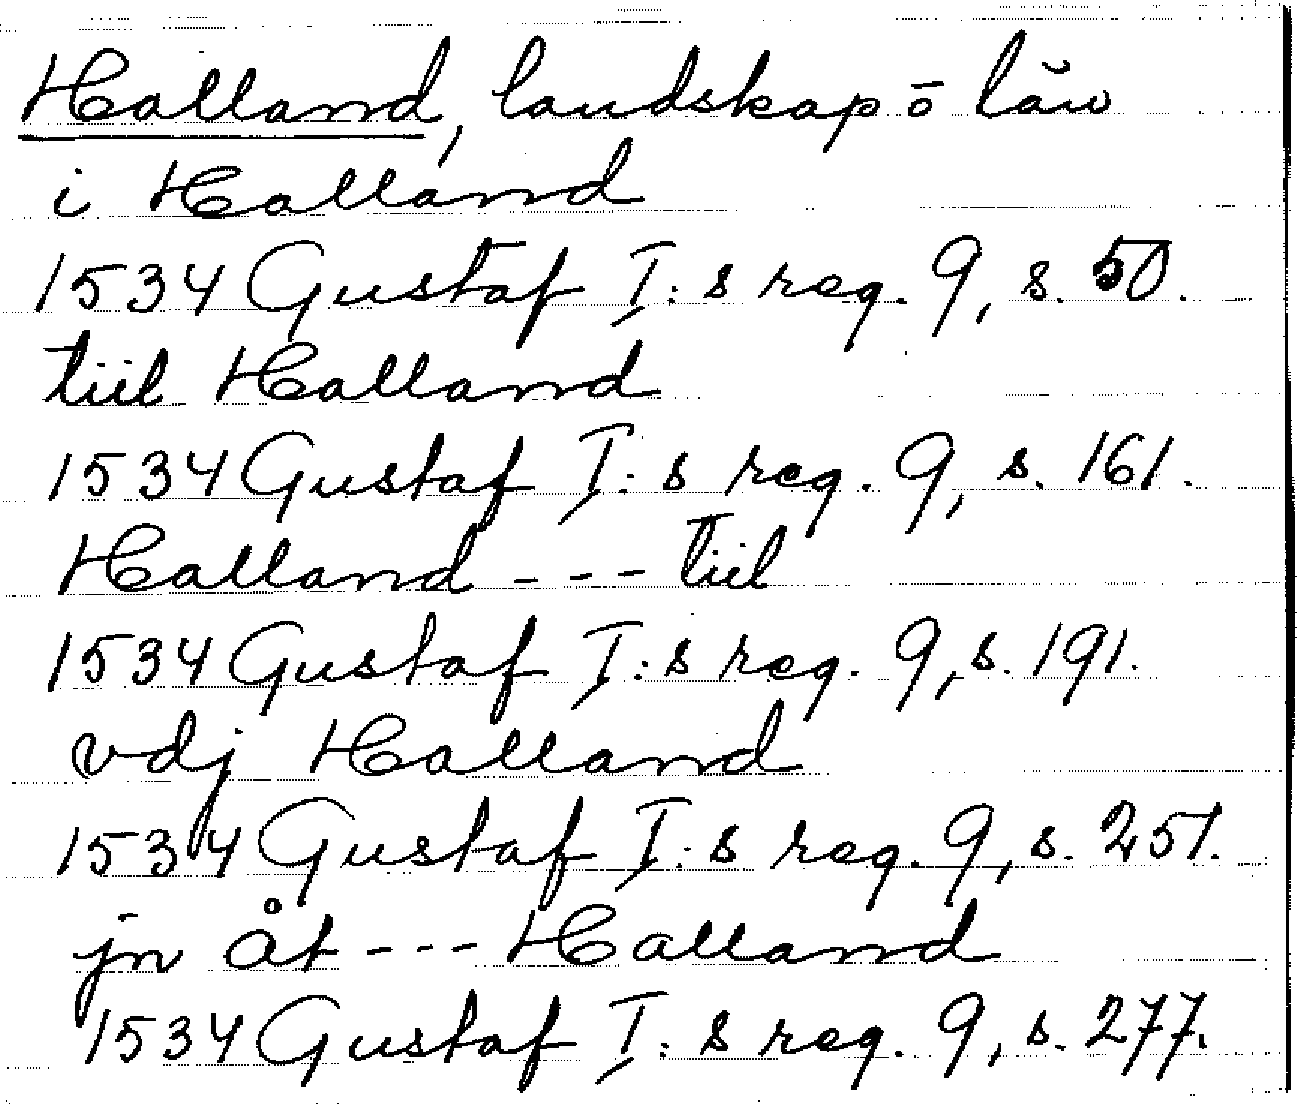 Halland, landskap o län
i Halland
1534 Gustaf I:s reg. 9, s. 50.
tiil Halland
1534 Gustaf I:s reg. 9, s. 161.
Halland - - - tiil
1534 Gustaf I:s reg. 9, s. 191.
vdj Halland
1534 Gustaf I:s reg. 9, s. 251.
jn åt - - - Halland
1534 Gustaf I:s reg. 9, s. 277.